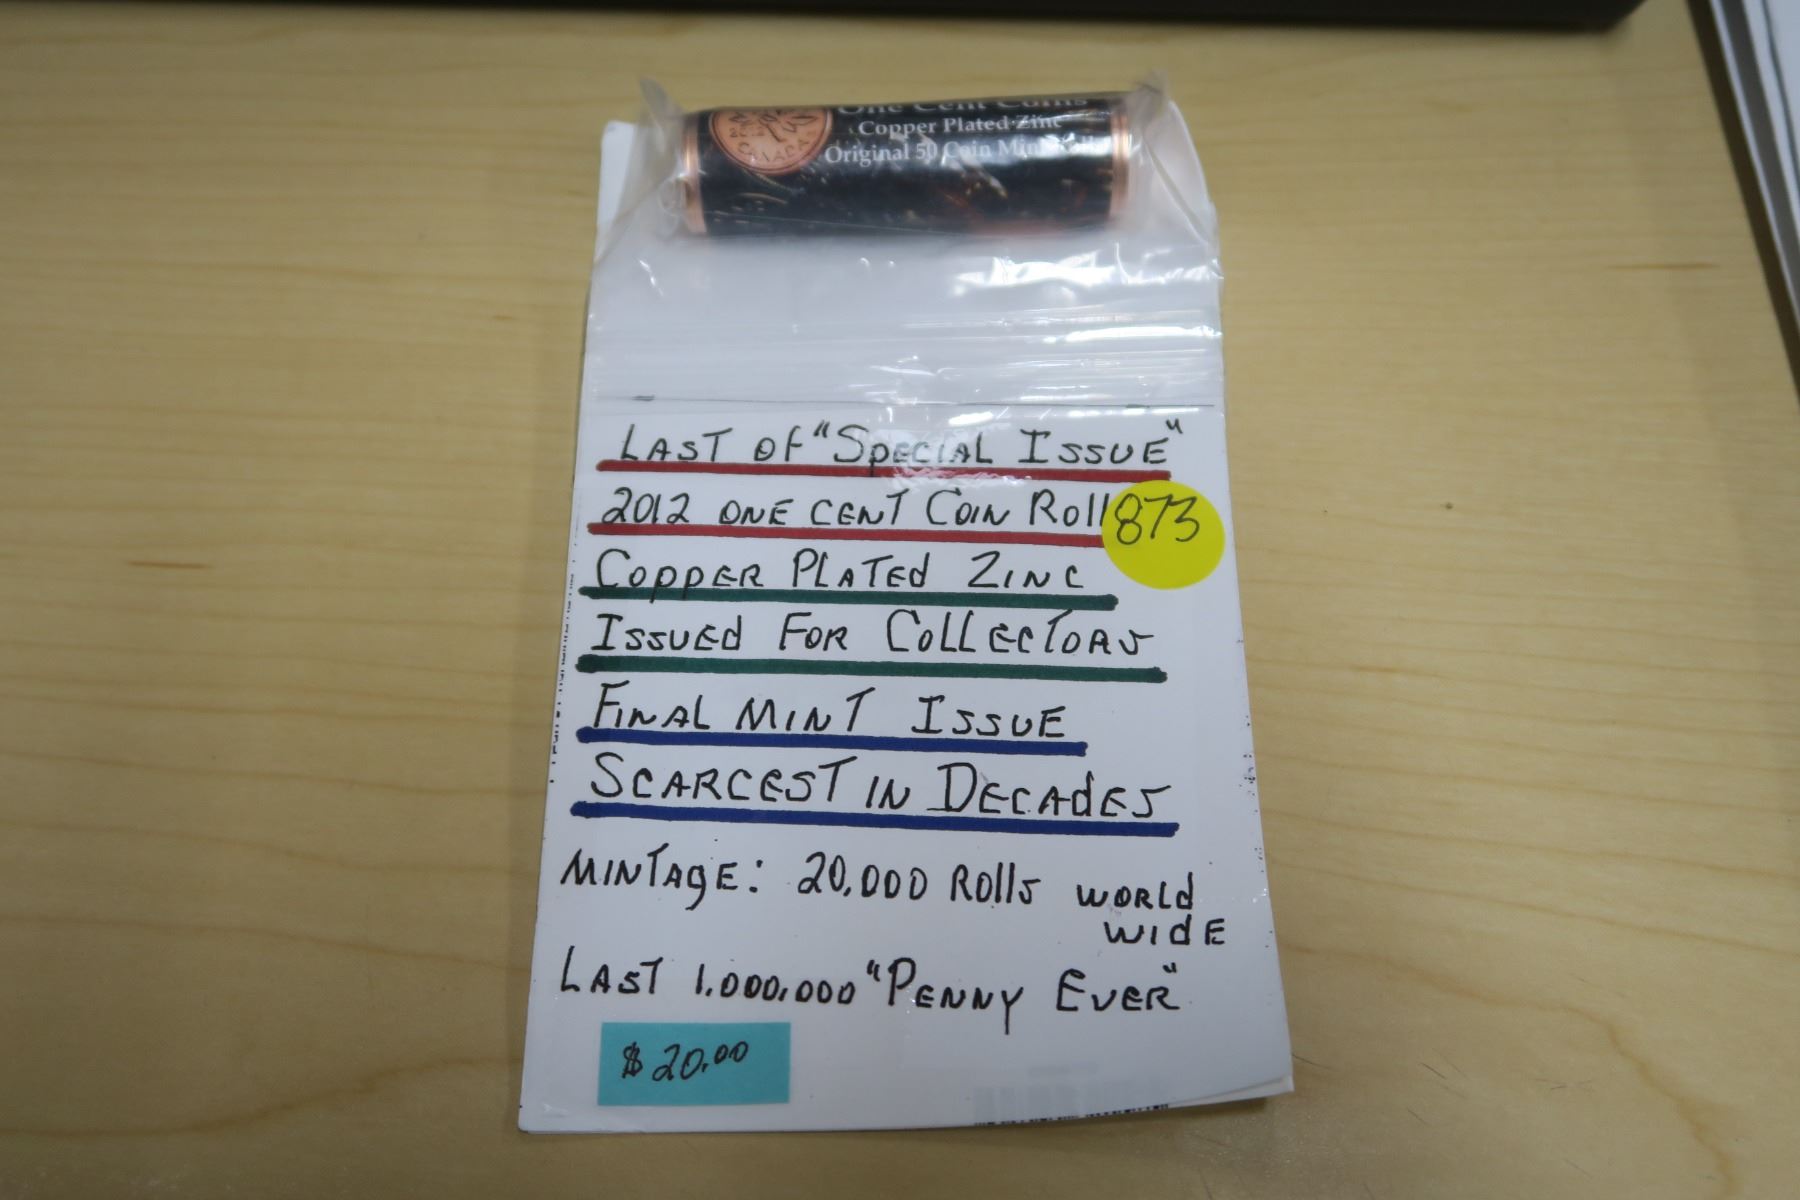 One Cent Coins
Copper Plated Zinc
Original 50 Coin Mint Roll
2012
CANADA
LAST OF "SPECIAL ISSUE"
2012 ONE CENT COIN ROLL
873
COPPER PLATED ZINC
ISSUED FOR COLLECTORS
FINAL MINT ISSUE
SCARCEST IN DECADES
MINTAGE: 20,000 ROLLS WORLD
WIDE
LAST 1,000,000 "PENNY EVER"
$20.00